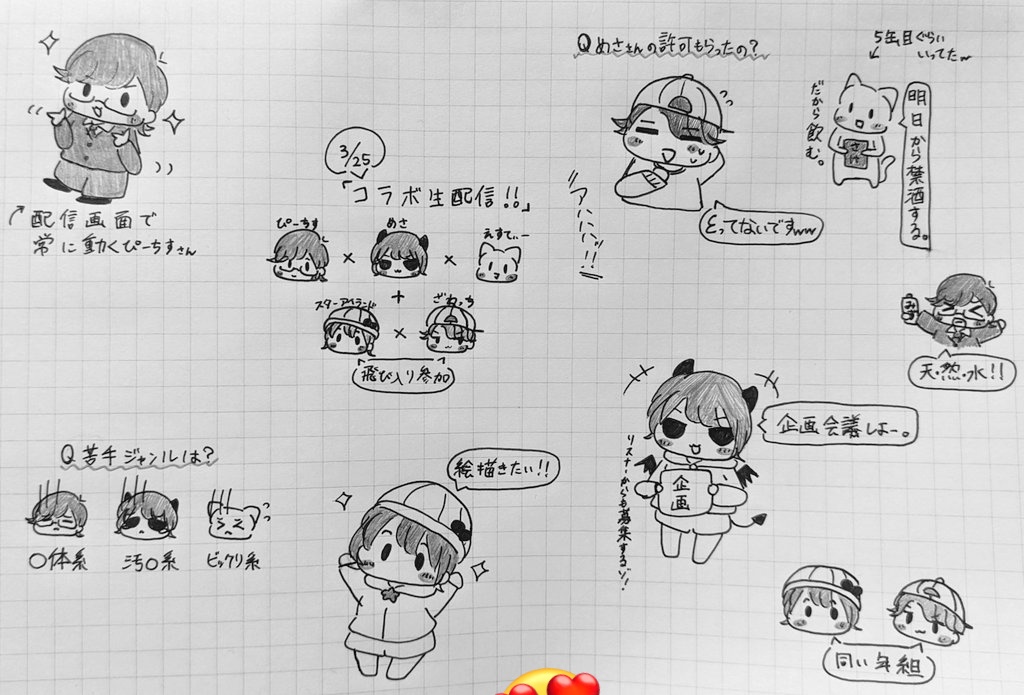 配信画面で
常に動くぴーちすさん
3/25
「コラボ生配信!!」
ぴーちす
×
めさ
×
えすてぃー
+
スターアイランド
×
飛び入り参加
Q めささんの許可もらったの?
アハハハ!!
とってないですww
5缶目ぐらい
いってたw
明日から禁酒する。
だから飲む。
さけ
天・然・水!!
Q 苦手ジャンルは?
〇体系
汚〇系
ビックリ系
絵描きたい!!
企画会議しよー。
企画
リスナーからも募集するゾ!
同い年組